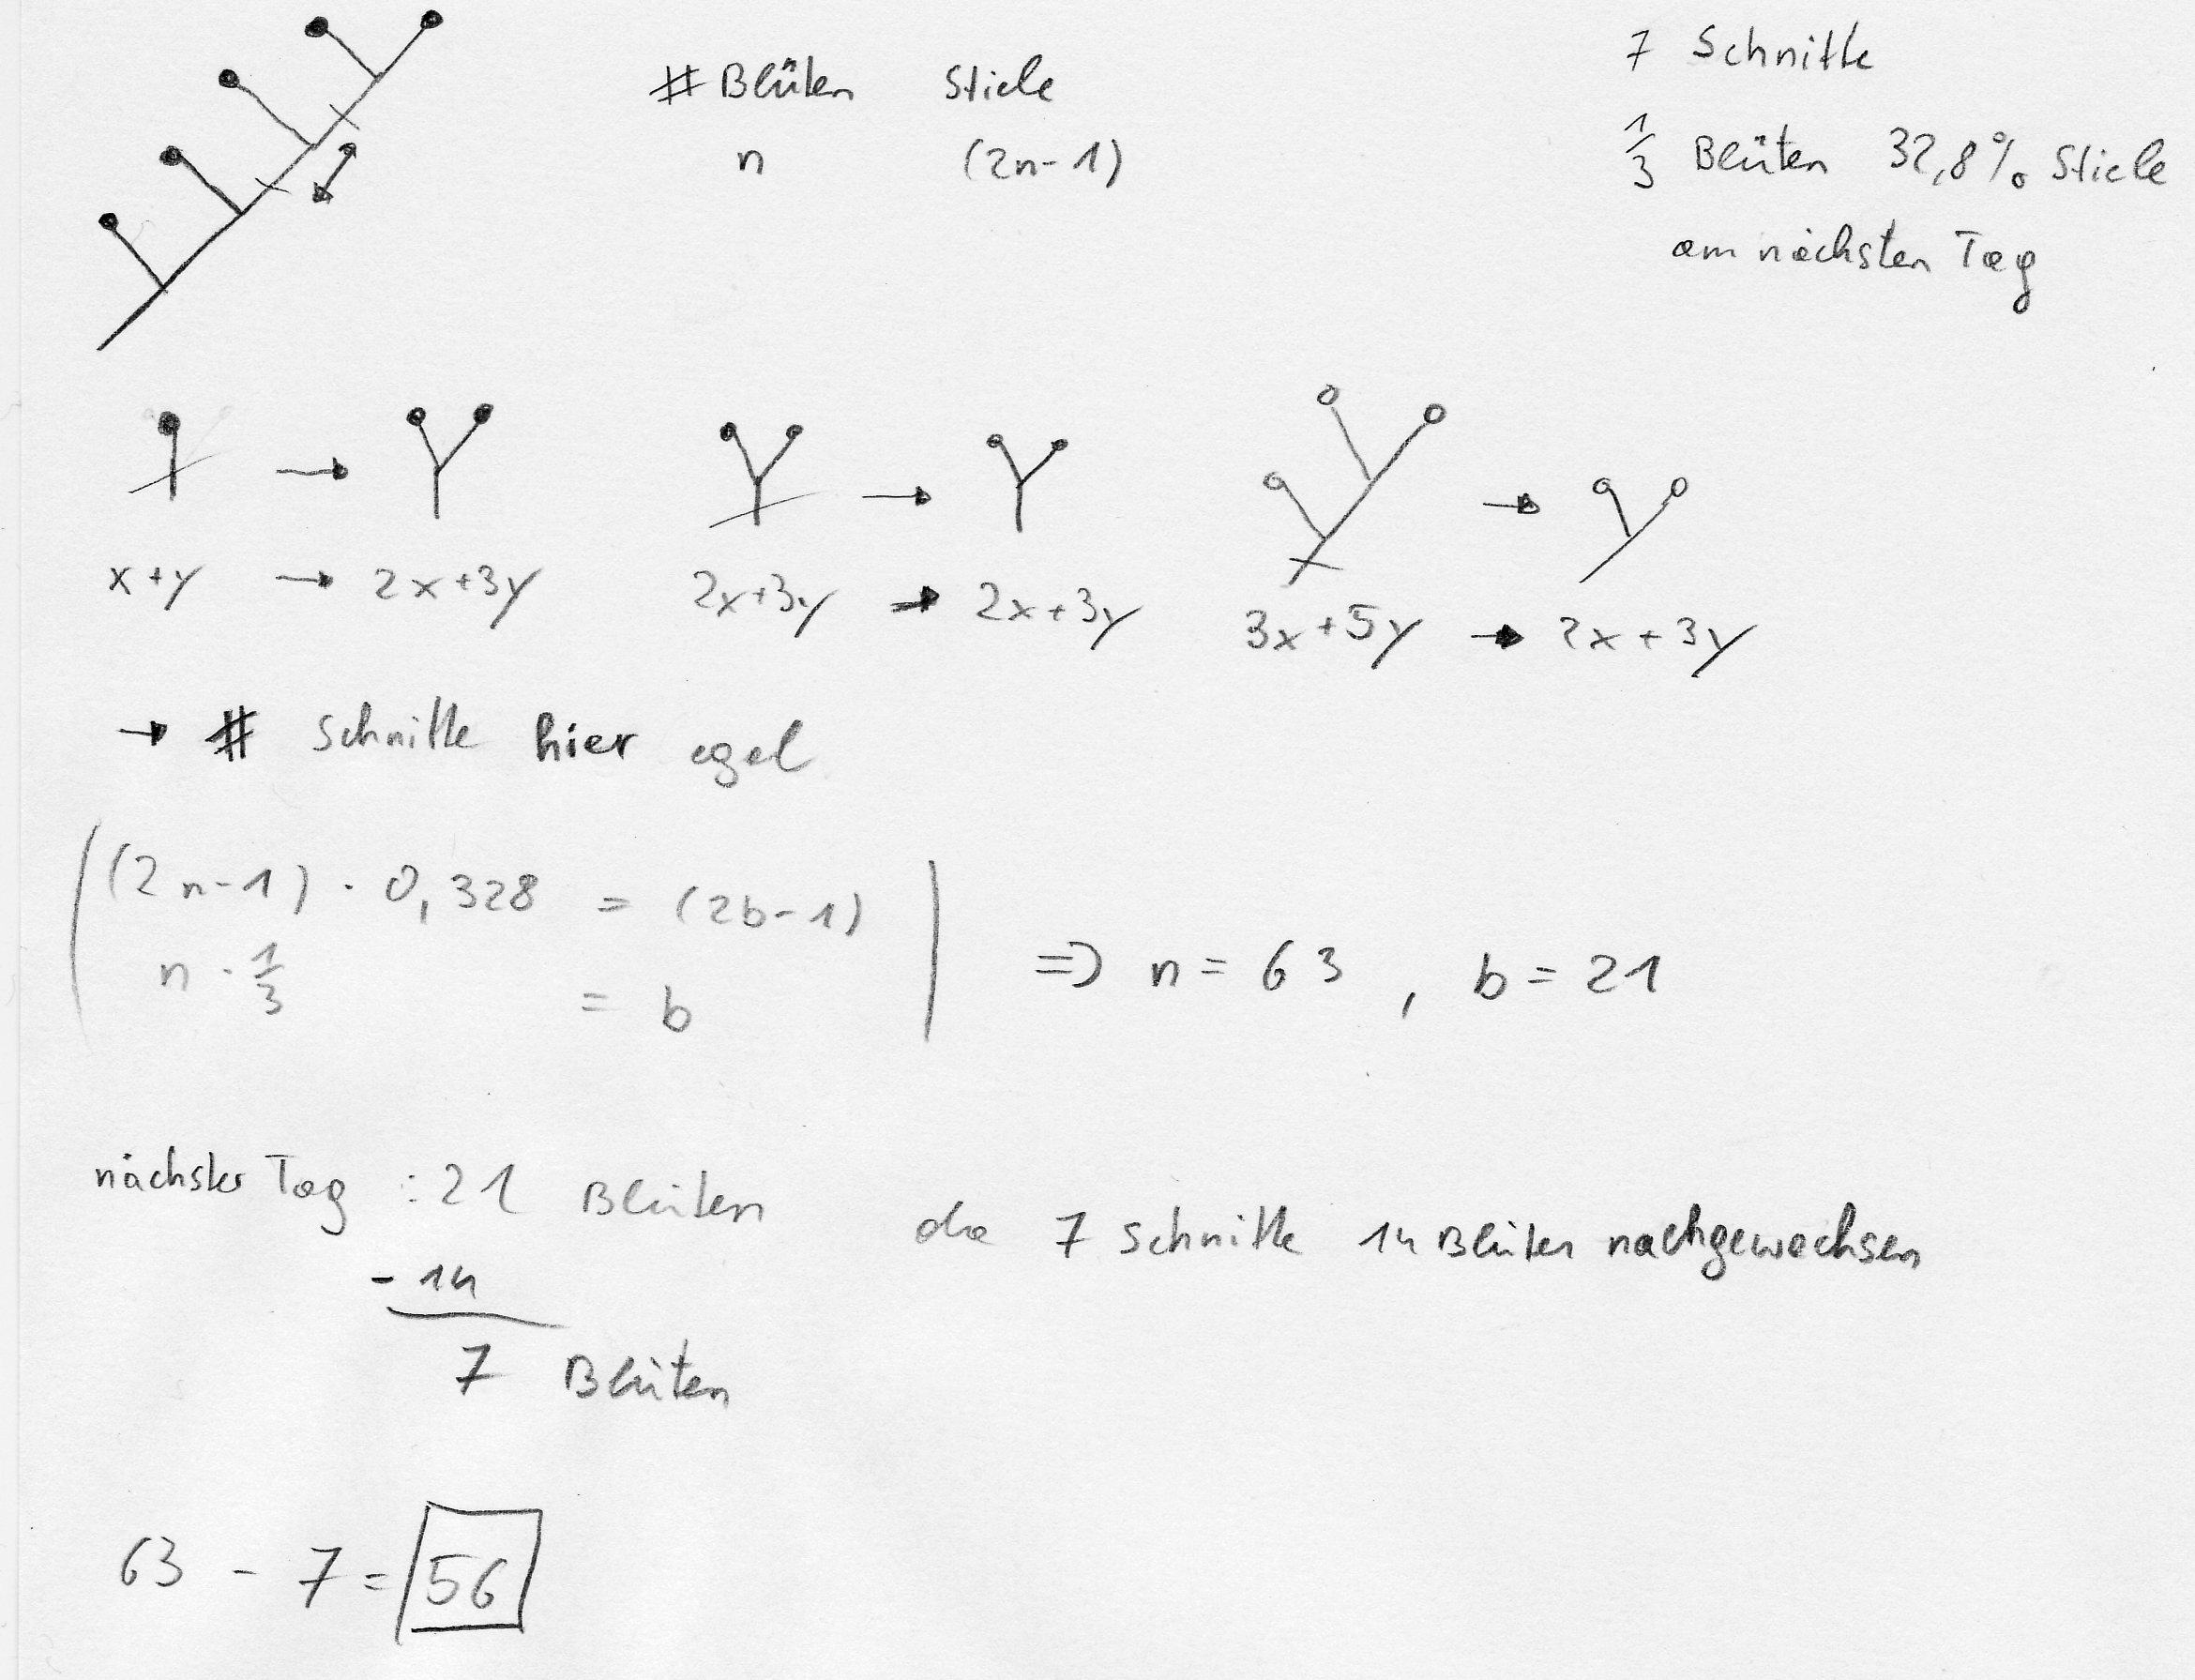 # Blüten Stiele
n (2n-1)
7 Schnitte
1/3 Blüten 32,8% Stiele
am nächsten Tag
x+y → 2x+3y
2x+3y → 2x+3y
3x+5y → 2x+3y
→ # Schnitte hier egal
(2n-1) · 0,328 = (2b-1)
n · 1/3 = b
=> n = 63 , b = 21
nächster Tag : 21 Blüten
da 7 Schnitte 14 Blüten nachgewachsen
- 14
7 Blüten
63 - 7 = 56